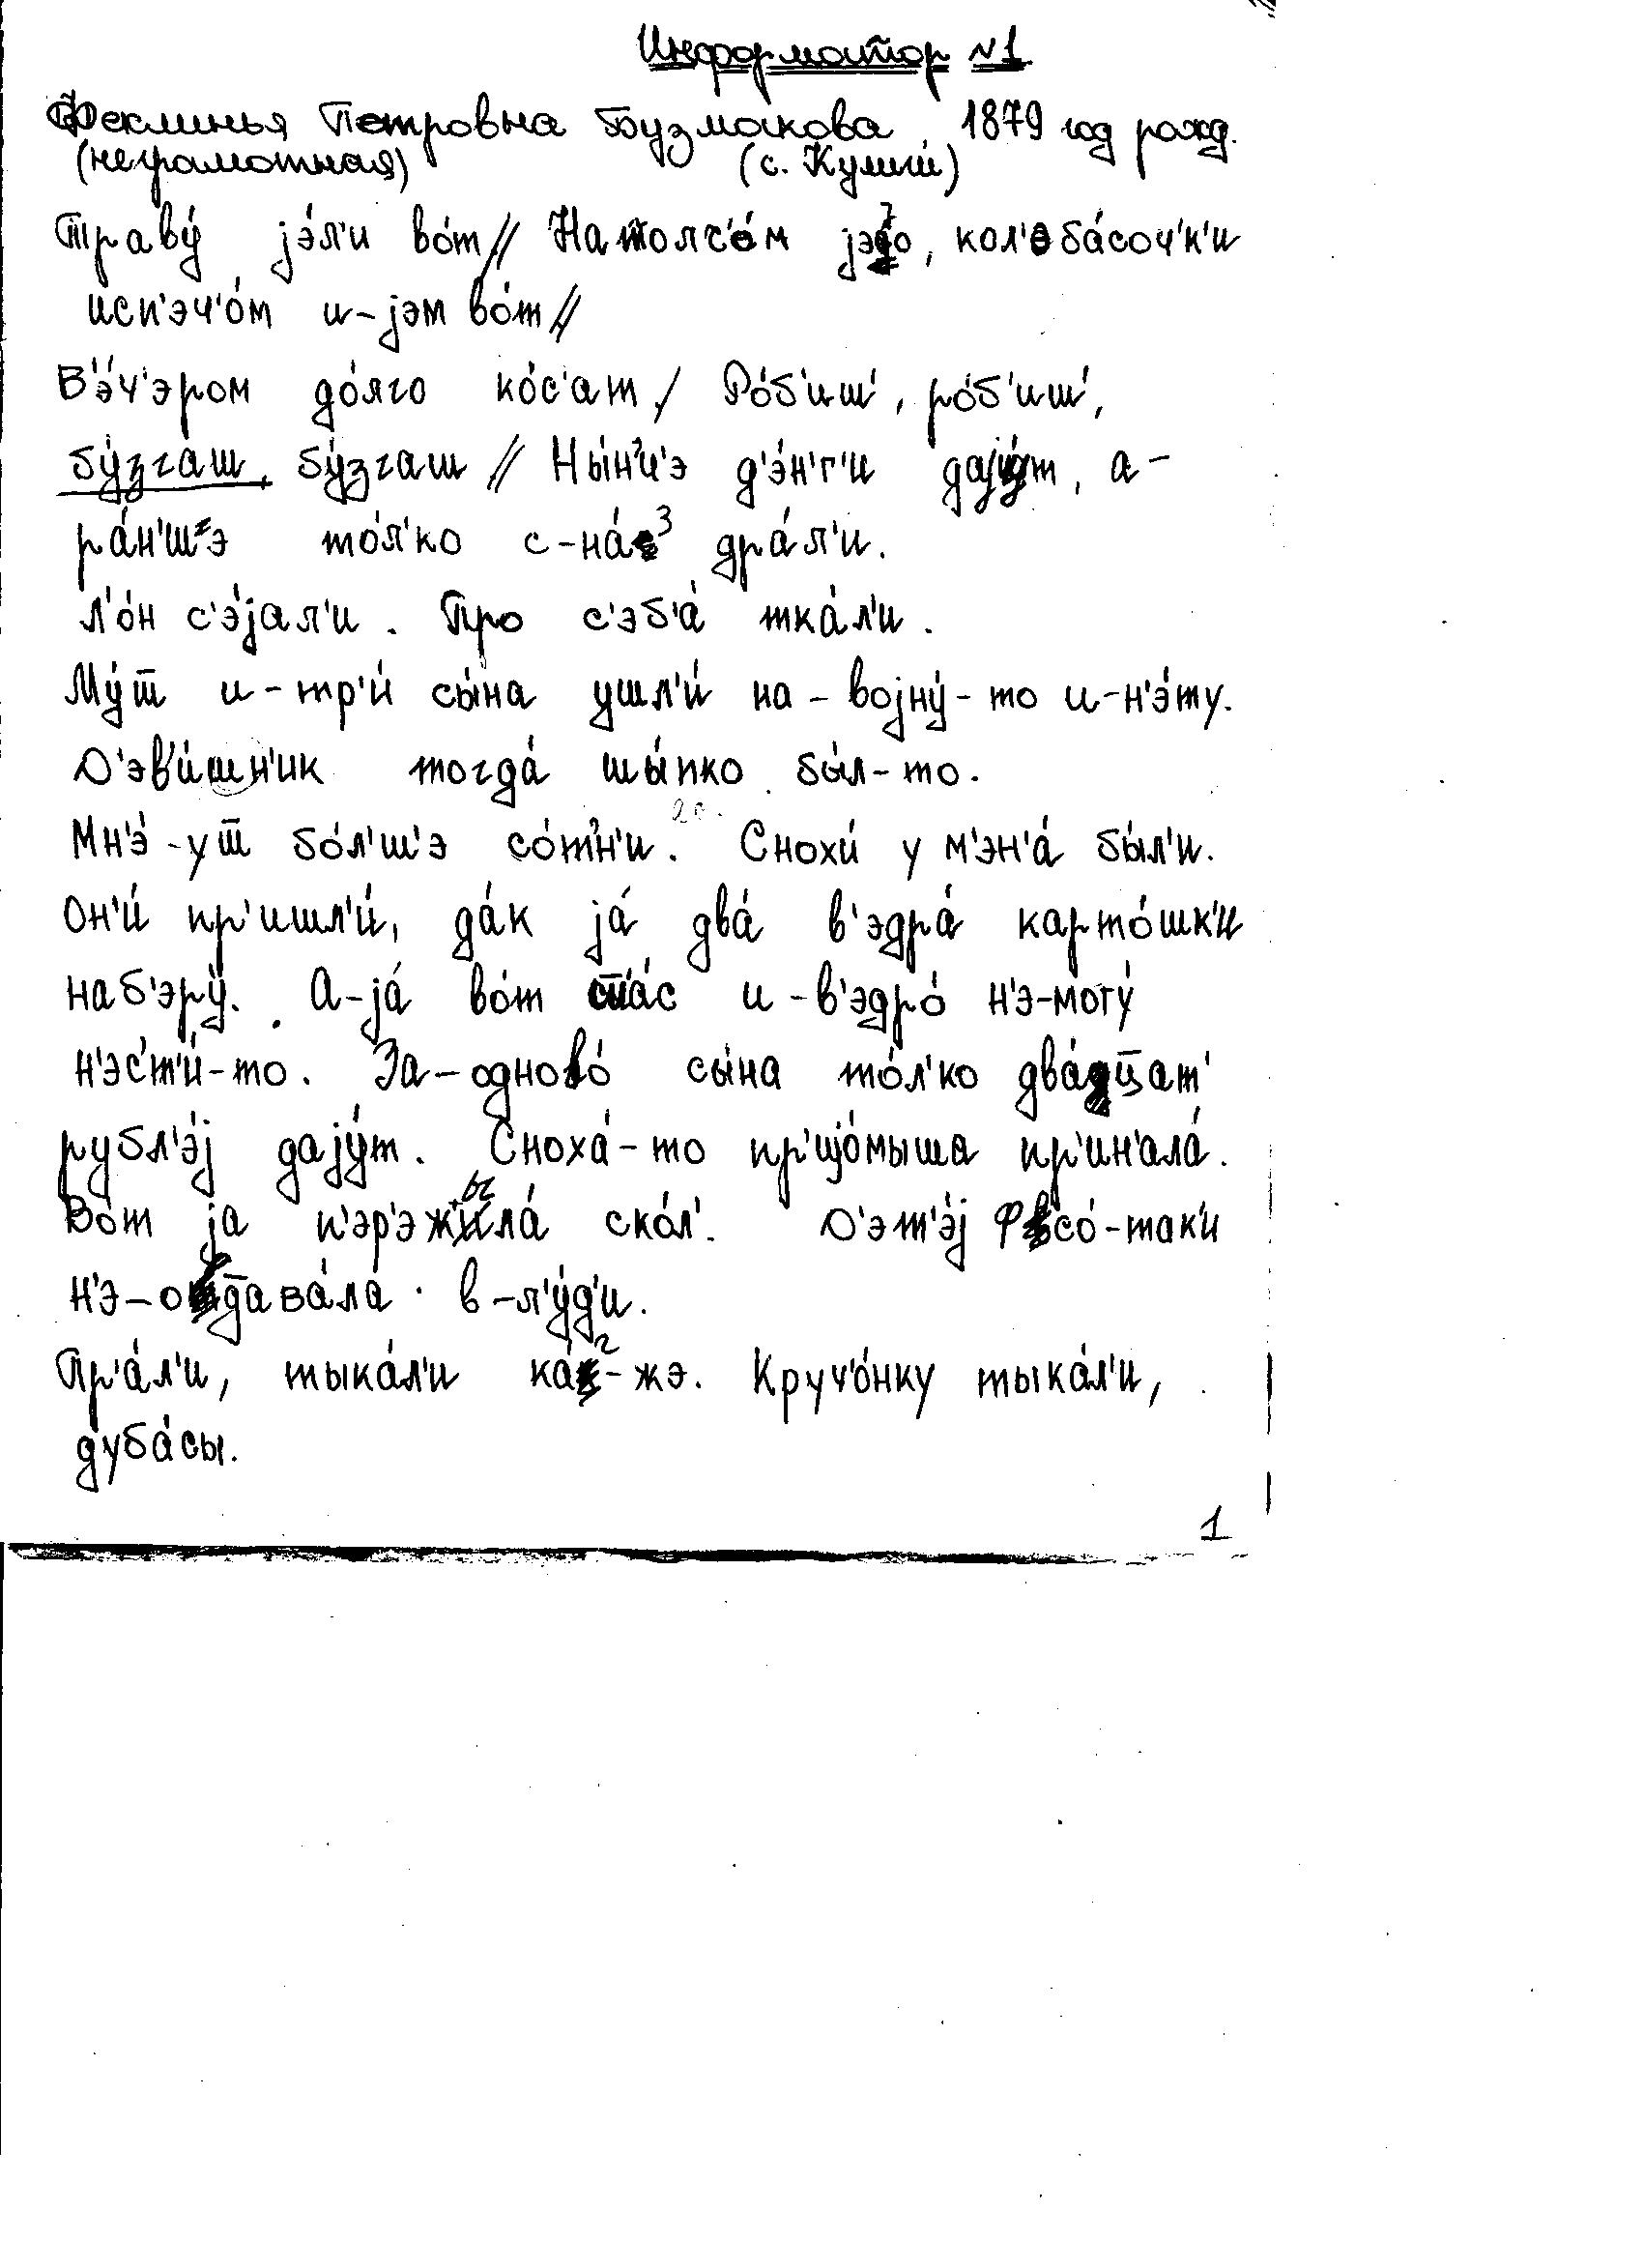 Информатор №1
Феклинья Петровна Бузмакова, 1879 год рожд.
(неграмотная) (с. Кулиги)
Траву́ jэ́л'и во́т // Натолч'о́м jэво, кол'эба́соч'к'и
исп'эч'о́м и-jэм во́т //
В'э́ч'эром до́лго ко́с'ат / Ро́б'иш', ро́б'иш',
бу́згаш, бу́згаш // Ны́н'ч'э д'э́н'г'и даjу́т, а-
ра́н'ш'э то́л'ко с-на́з дра́л'и.
Л'о́н с'э́jал'и. Про с'эб'а́ тка́л'и.
Му́ш и-тр'и́ сы́на ушл'и́ на-воjну́-то и-н'э́ту.
Д'эв'и́шн'ик тогда́ шы́пко бы́л-то.
Мн'э́-уш бо́л'ш'э со́тн'и. Снохи́ у м'эн'а́ бы́л'и.
Он'и́ пр'ишл'и́, да́к jа́ два́ в'эдра́ карто́шк'и
наб'эру́. А-jа́ во́т ш'а́с и-в'эдро́ н'э-могу́
н'эст'и́-то. За-одново́ сы́на то́л'ко два́цат'
рубл'э́j даjу́т. Сноха́-то пр'иjо́мыша пр'ин'ала́.
Во́т jа п'эр'эжыла́ ско́л'. Д'эт'э́j фсо́-так'и
н'э-одава́ла в-л'у́д'и.
Пр'а́л'и, тыка́л'и ка́г-жэ. Круч'о́нку тыка́л'и,
дуба́сы.
1